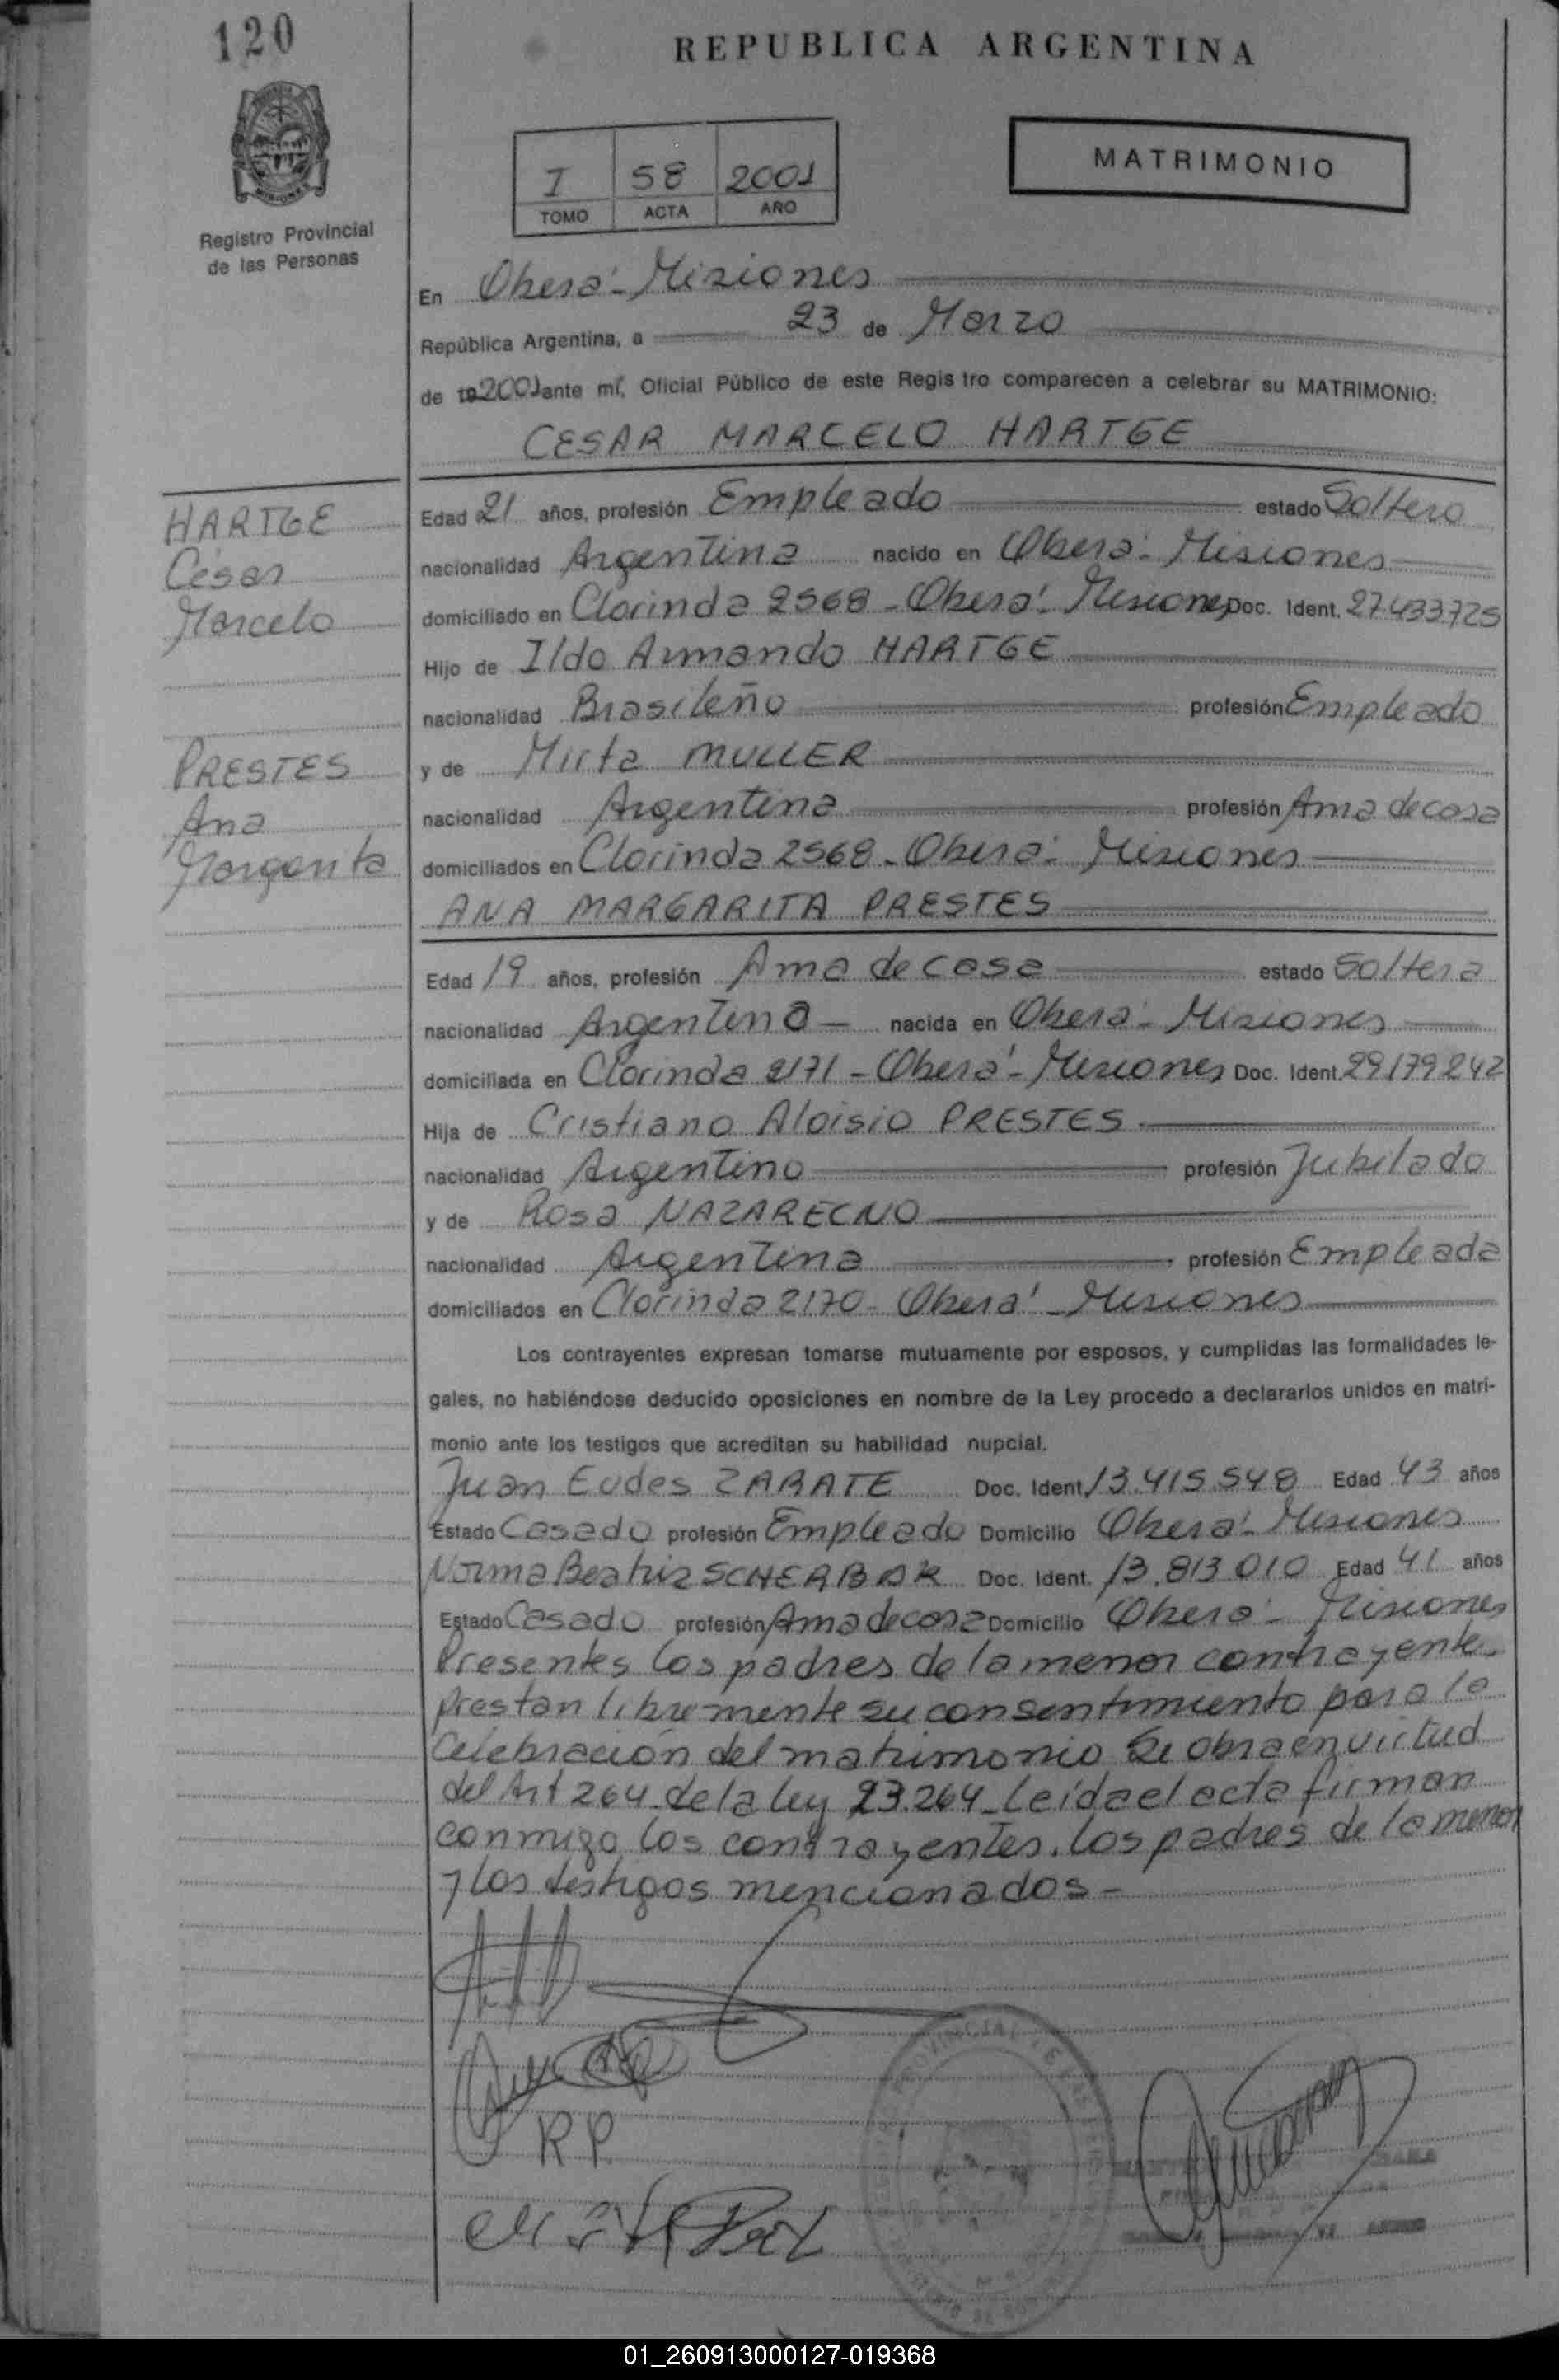 120
REPUBLICA ARGENTINA
I 58 2001
TOMO ACTA AÑO
MATRIMONIO
Registro Provincial
de las Personas
En Oberá - Misiones
República Argentina, a 23 de Marzo
de 19 2001 ante mí, Oficial Público de este Regis tro comparecen a celebrar su MATRIMONIO:
CESAR MARCELO HARTGE
HARTGE
César
Marcelo
Edad 21 años, profesión Empleado estado Soltero
nacionalidad Argentina nacido en Oberá - Misiones
domiciliado en Clorinda 2568 - Oberá - Misiones Doc. Ident. 27.433.725
Hijo de Ildo Armando HARTGE
nacionalidad Brasileño profesión Empleado
y de Mirta MULLER
nacionalidad Argentina profesión Ama de casa
domiciliados en Clorinda 2568 - Oberá - Misiones
PRESTES
Ana
Margarita
ANA MARGARITA PRESTES
Edad 19 años, profesión Ama de casa estado Soltera
nacionalidad Argentina - nacida en Oberá - Misiones
domiciliada en Clorinda 2171 - Oberá - Misiones Doc. Ident. 29.179.242
Hija de Cristiano Aloisio PRESTES
nacionalidad Argentino profesión Jubilado
y de Rosa NAZARECNO
nacionalidad Argentina profesión Empleada
domiciliados en Clorinda 2170 - Oberá - Misiones
Los contrayentes expresan tomarse mutuamente por esposos, y cumplidas las formalidades le-
gales, no habiéndose deducido oposiciones en nombre de la Ley procedo a declararlos unidos en matri-
monio ante los testigos que acreditan su habilidad nupcial.
Juan Eudes ZARATE Doc. Ident. 13.415.548 Edad 43 años
Estado Casado profesión Empleado Domicilio Oberá - Misiones
Norma Beatriz SCHERBAK Doc. Ident. 13.813.010 Edad 41 años
Estado Casado profesión Ama de casa Domicilio Oberá - Misiones
Presentes los padres de la menor contrayente
prestan libremente su consentimiento para la
Celebración del matrimonio Se obra en virtud
del Art 264 de la ley 23.264 - Leída el acta firman
conmigo los contrayentes, los padres de la menor
y los testigos mencionados -
R P
01_260913000127-019368